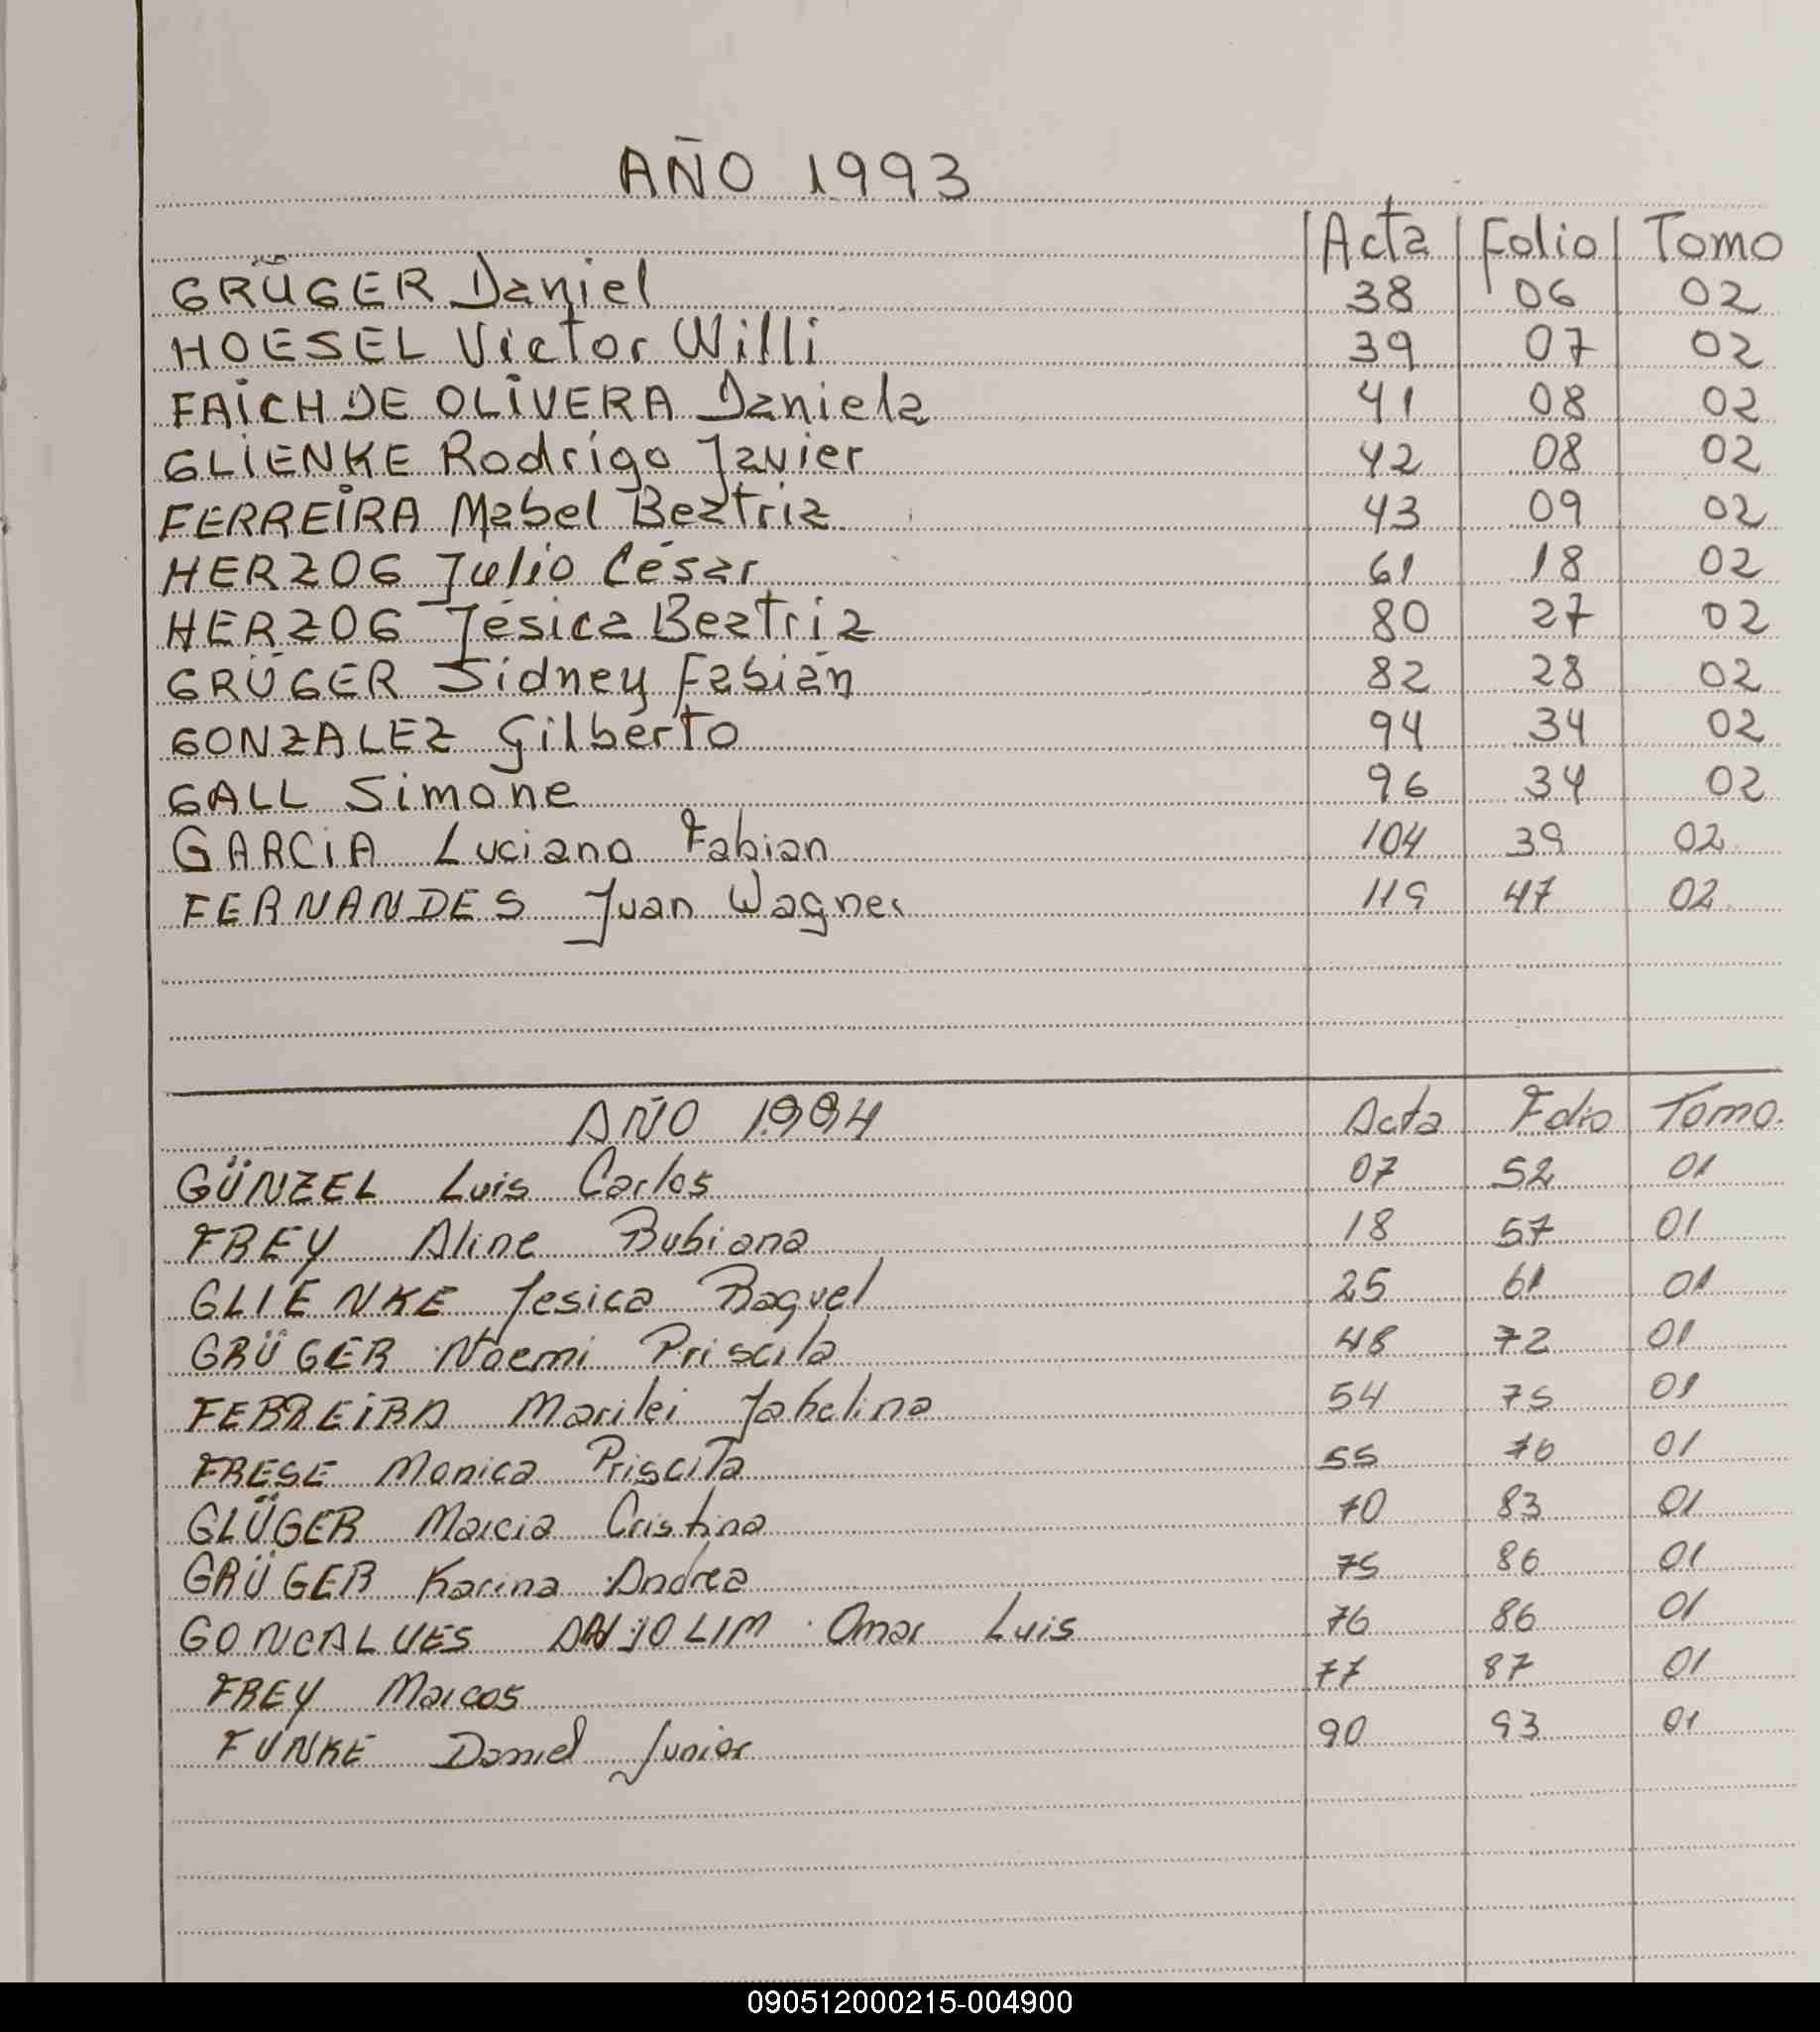 AÑO 1993
Acta Folio Tomo
GRÜGER Daniel 38 06 02
HOESEL Victor Willi 39 07 02
FAICH DE OLIVERA Daniela 41 08 02
GLIENKE Rodrigo Javier 42 08 02
FERREIRA Mabel Beatriz 43 09 02
HERZOG Julio César 61 18 02
HERZOG Jésica Beatriz 80 27 02
GRÜGER Sidney Fabián 82 28 02
GONZALEZ Gilberto 94 34 02
GALL Simone 96 34 02
GARCIA Luciano Fabian 104 39 02
FERNANDES Juan Wagner 119 47 02
AÑO 1994 Acta Folio Tomo.
GÜNZEL Luis Carlos 07 52 01
FREY Aline Rubiana 18 57 01
GLIENKE Jesica Raquel 25 61 01
GRÜGER Noemi Priscila 48 72 01
FERREIRA Marilei 54 75 01
FRESE Monica Priscila 55 76 01
GLÜGER Marcia Cristina 70 83 01
GRÜGER Karina Andrea 75 86 01
GONCALVES Omar Luis 76 86 01
FREY Marcos 77 87 01
FUNKE Daniel Junior 90 93 01
090512000215-004900